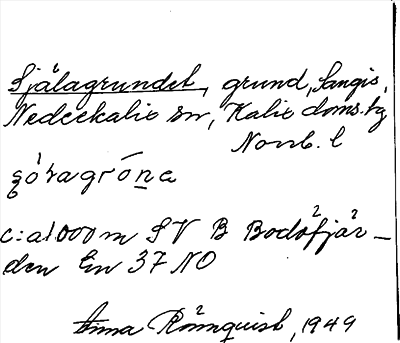 Själagrundet, grund, Sangis,
Nederkalix sn, Kalix doms.hg
Norrb. l
c:a 1000 m SV B Bodöfjär-
den En 37 NO
Anna Rönnquist, 1949